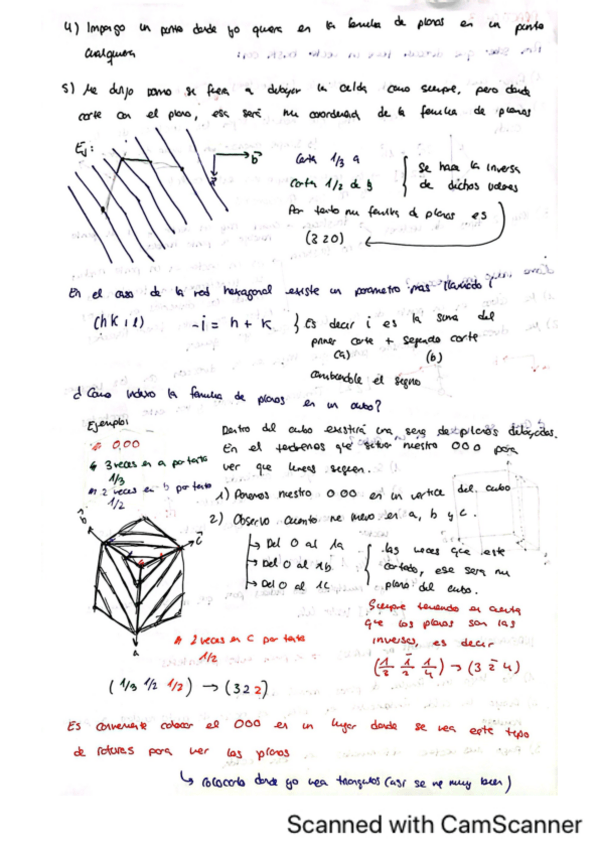 4) Impongo un punto donde yo quiera en la familia de planos en un punto
cualquiera
5) Me dibujo como si fuera a dibujar la celda como siempre, pero donde
corte con el plano, esa será mi coordenada de la familia de planos
Ej:
b
a
Corta 1/3 a
Corta 1/2 de b
Se hace la inversa
de dichos valores
Por tanto mi familia de planos es
(320)
En el caso de la red hexagonal existe un parametro más llamado i
(h k i l)
-i = h + k
Es decir i es la suma del
primer corte + segundo corte
(a)
(b)
cambiandole el signo
¿Como indexo la familia de planos en un cubo?
Ejemplo:
0,00
3 veces en a por tanto
1/3
2 veces en b por tanto
1/2
Dentro del cubo existirá una serie de planos dibujados.
En el tendremos que situar nuestro 000 para
ver que lineas siguen.
1) Ponemos nuestro 000 en un vertice del cubo
2) Observo cuanto me muevo en a, b y c.
b
c
a
Del 0 al 1a
Del 0 al 1b
Del 0 al 1c
las veces que este
cortado, ese sera mi
plano del cubo.
Siempre teniendo en cuenta
que los planos son las
inversas, es decir
2 veces en c por tanto
1/2
(1/3 1/2 1/2) → (322)
Es conveniente colocar el 000 en un lugar donde se vea este tipo
de roturas para ver los planos
↳ colocarlo donde yo vea triangulos (asi se ve muy bien)
Scanned with CamScanner